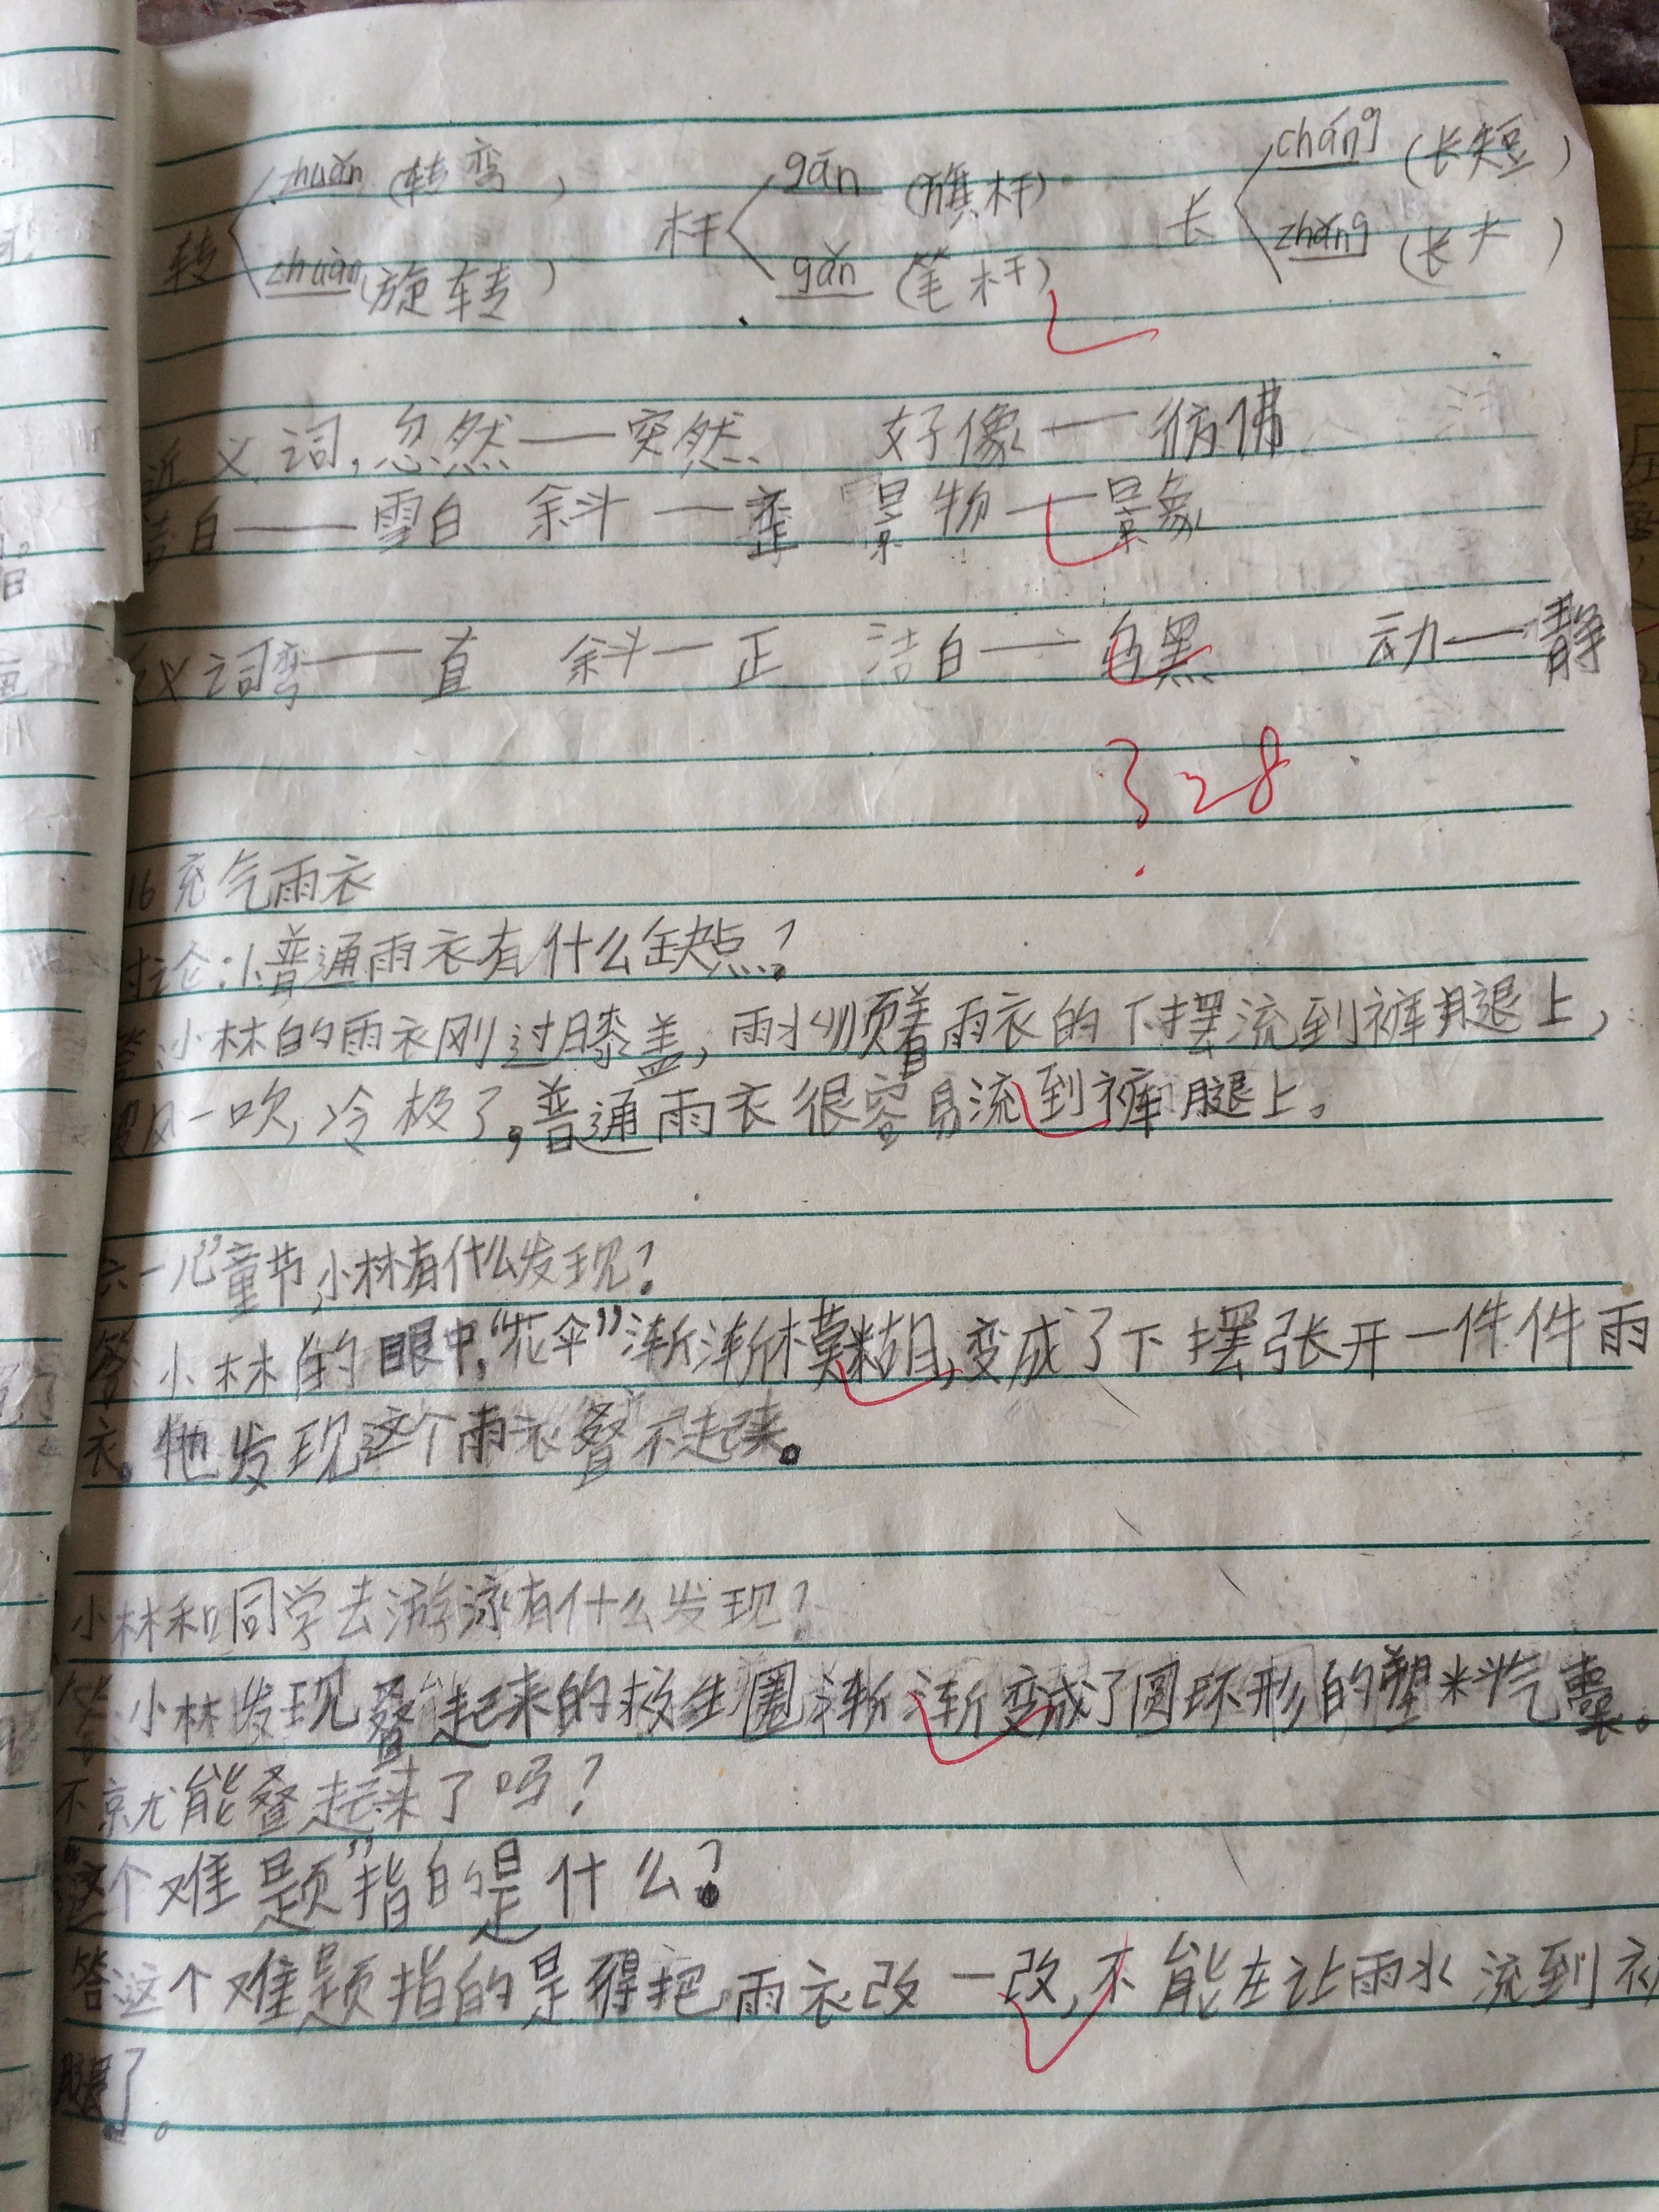 转 zhuǎn (转弯) 杆 gān (旗杆) 长 cháng (长短)
zhuàn (旋转) gǎn (笔杆) zhǎng (长大)
近义词,忽然——突然 好像——彷佛
洁白——雪白 斜——歪 景物——景象
义词弯——直 斜—正 洁白——乌黑 动——静
3.28.
16充气雨衣
讨论:1.普通雨衣有什么缺点?
答:小林的雨衣刚过膝盖,雨水顺着雨衣的下摆流到裤腿上,
风一吹,冷极了,普通雨衣很容易流到裤腿上。
六一儿童节,小林有什么发现?
答:小林的眼中,“花伞”渐渐模糊,变成了下摆张开一件件雨
衣。他发现这个雨衣叠不起来。
小林和同学去游泳有什么发现?
答:小林发现叠起来的救生圈渐渐变成了圆环形的塑料气囊。
不就能叠起来了吗?
“这个难题”指的是什么?
答这个难题指的是得把雨衣改一改,不能在让雨水流到
腿了。